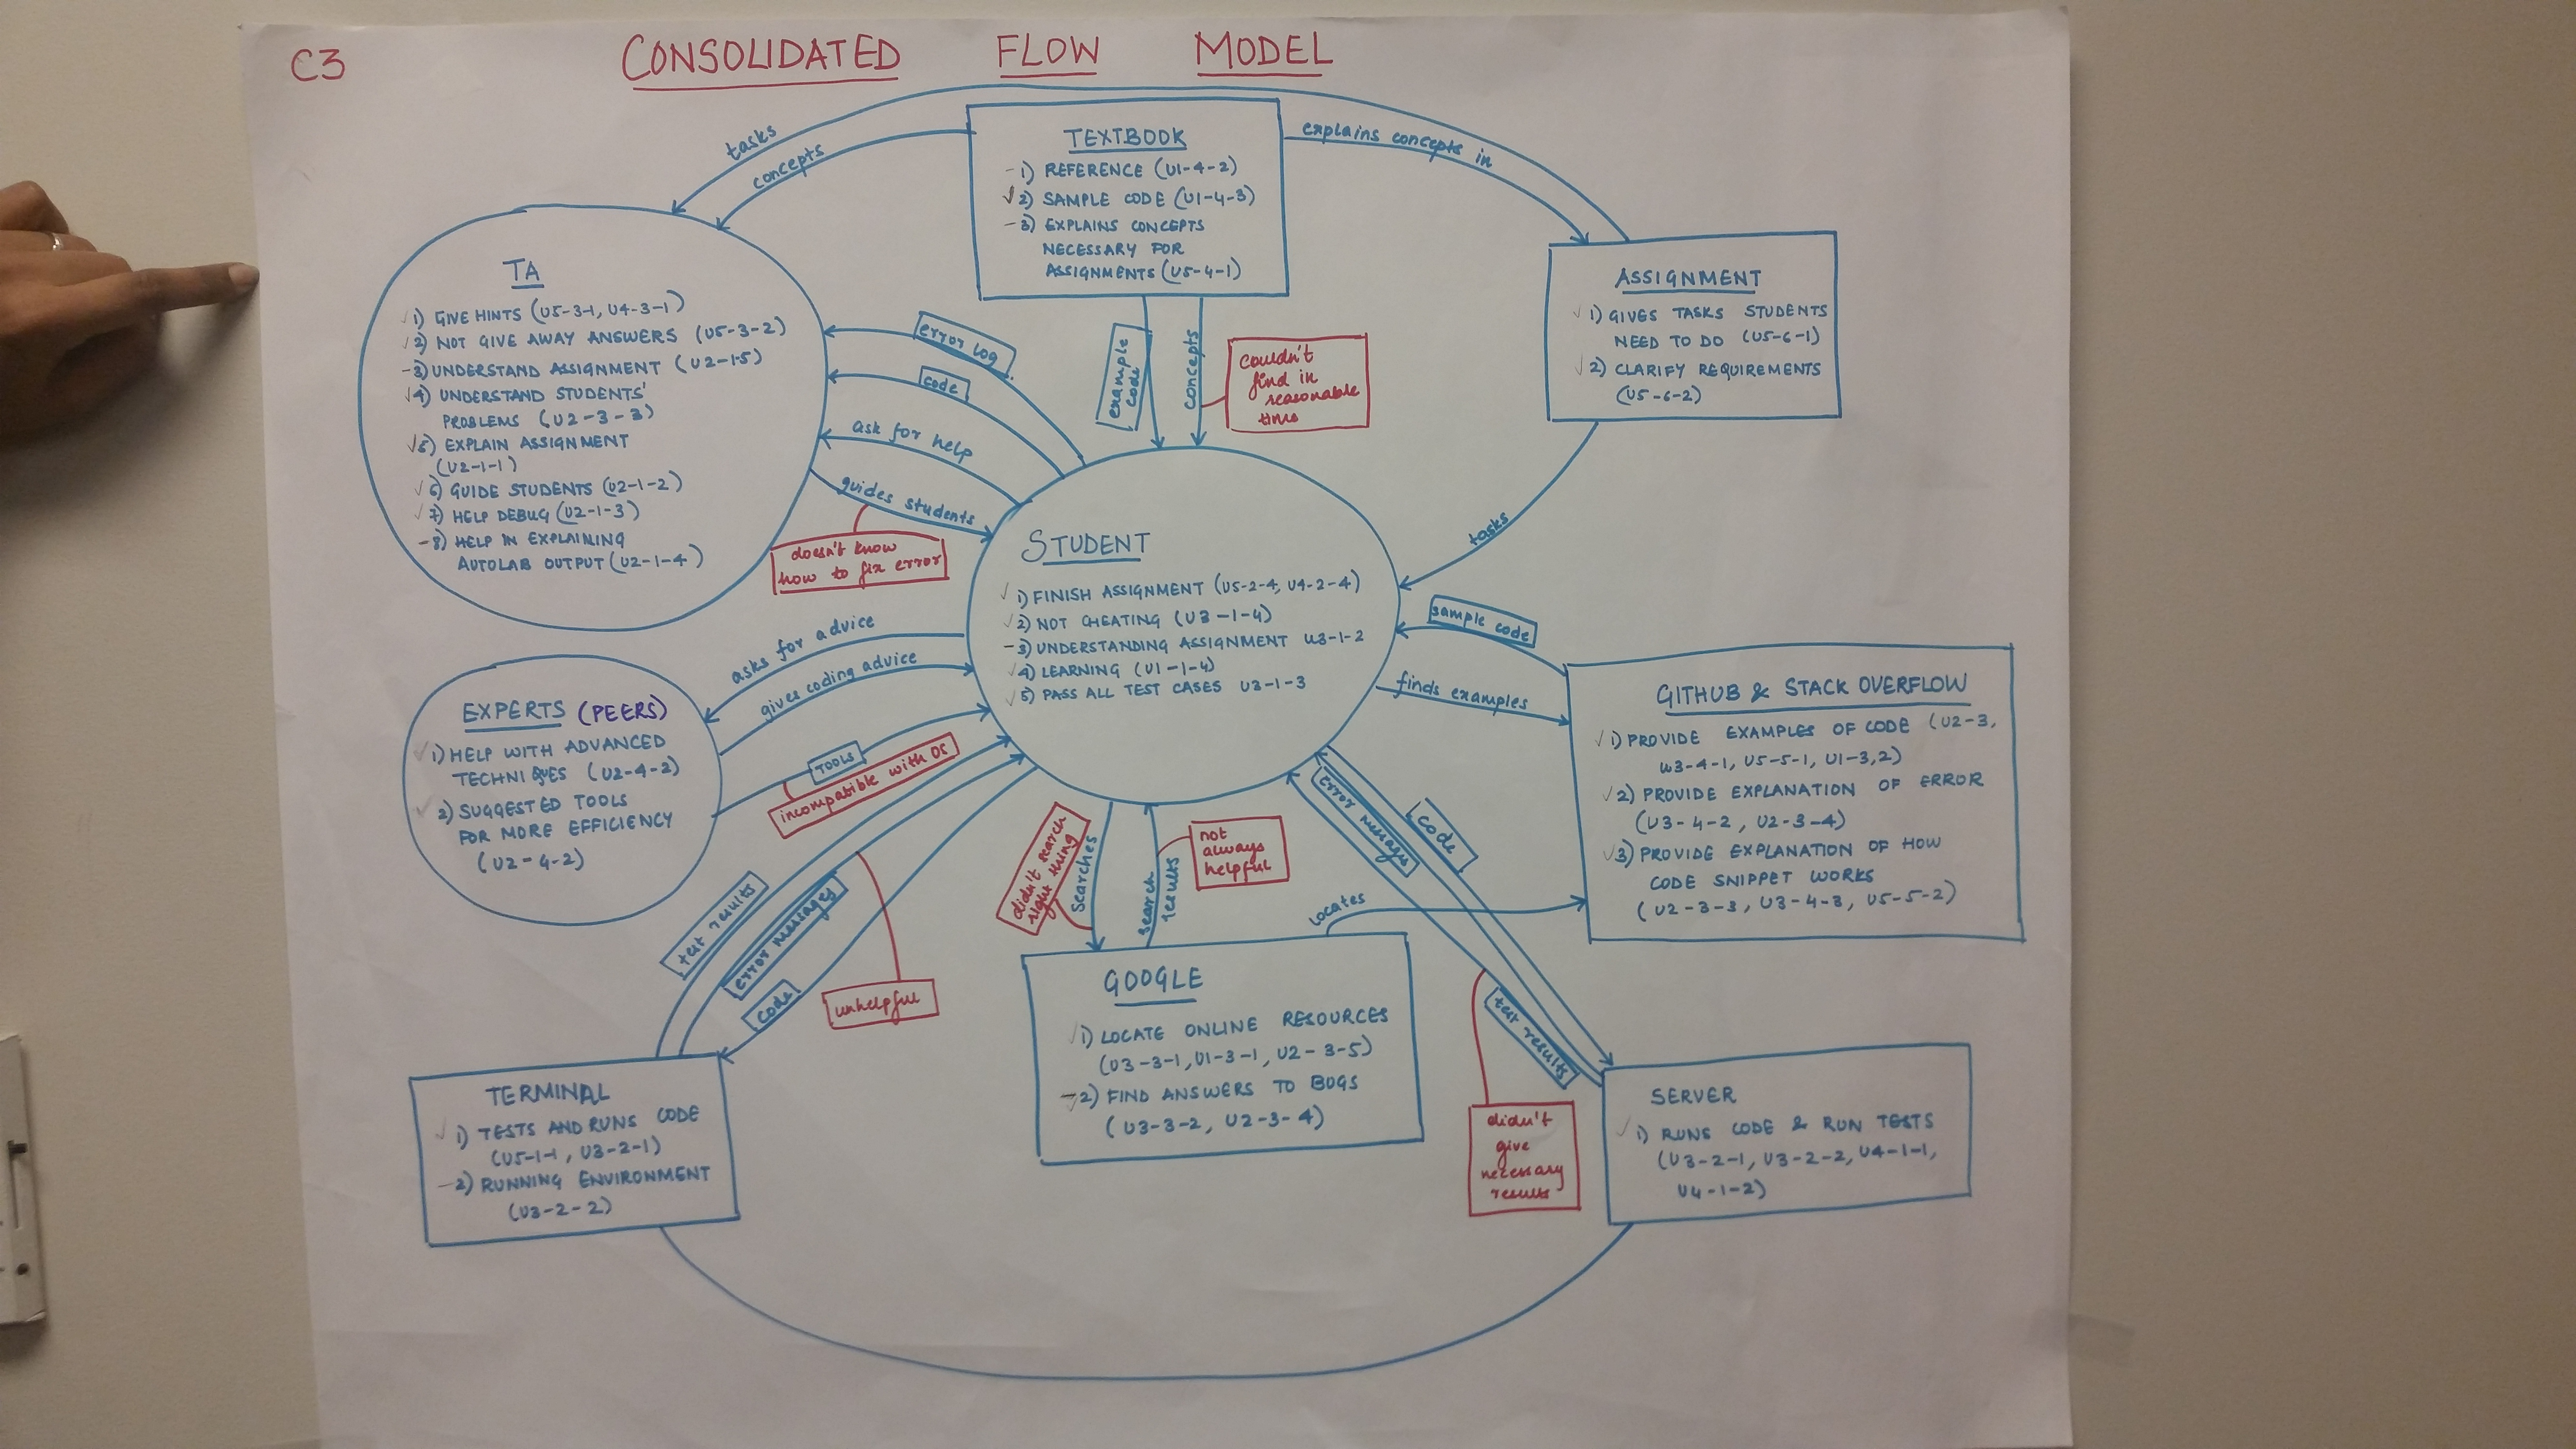 C3
CONSOLIDATED FLOW MODEL
tasks
concepts
explains concepts in
TEXTBOOK
1) REFERENCE (U1-4-2)
2) SAMPLE CODE (U1-4-3)
3) EXPLAINS CONCEPTS
NECESSARY FOR
ASSIGNMENTS (U5-4-1)
TA
1) GIVE HINTS (U5-3-1, U4-3-1)
2) NOT GIVE AWAY ANSWERS (U5-3-2)
3) UNDERSTAND ASSIGNMENT (U2-1-5)
4) UNDERSTAND STUDENTS'
PROBLEMS (U2-3-3)
5) EXPLAIN ASSIGNMENT
(U2-1-1)
6) GUIDE STUDENTS (U2-1-2)
7) HELP DEBUG (U2-1-3)
8) HELP IN EXPLAINING
AUTOLAB OUTPUT (U2-1-4)
ASSIGNMENT
1) GIVES TASKS STUDENTS
NEED TO DO (U5-6-1)
2) CLARIFY REQUIREMENTS
(U5-6-2)
error log
code
ask for help
guides students
doesn't know
how to fix error
example
code
concepts
couldn't
find in
reasonable
time
tasks
STUDENT
1) FINISH ASSIGNMENT (U5-2-4, U4-2-4)
2) NOT CHEATING (U3-1-4)
3) UNDERSTANDING ASSIGNMENT U3-1-2
4) LEARNING (U1-1-4)
5) PASS ALL TEST CASES U3-1-3
asks for advice
gives coding advice
TOOLS
incompatible with OS
sample code
finds examples
EXPERTS (PEERS)
1) HELP WITH ADVANCED
TECHNIQUES (U2-4-2)
2) SUGGESTED TOOLS
FOR MORE EFFICIENCY
(U2-4-2)
GITHUB & STACK OVERFLOW
1) PROVIDE EXAMPLES OF CODE (U2-3,
U3-4-1, U5-5-1, U1-3,2)
2) PROVIDE EXPLANATION OF ERROR
(U3-4-2, U2-3-4)
3) PROVIDE EXPLANATION OF HOW
CODE SNIPPET WORKS
(U2-3-3, U3-4-3, U5-5-2)
test results
error messages
code
unhelpful
didn't search
right thing
searches
search
results
not
always
helpful
locates
error messages
code
test results
didn't
give
necessary
results
GOOGLE
1) LOCATE ONLINE RESOURCES
(U3-3-1, U1-3-1, U2-3-5)
2) FIND ANSWERS TO BUGS
(U3-3-2, U2-3-4)
TERMINAL
1) TESTS AND RUNS CODE
(U5-1-1, U3-2-1)
2) RUNNING ENVIRONMENT
(U3-2-2)
SERVER
1) RUNS CODE & RUN TESTS
(U3-2-1, U3-2-2, U4-1-1,
U4-1-2)